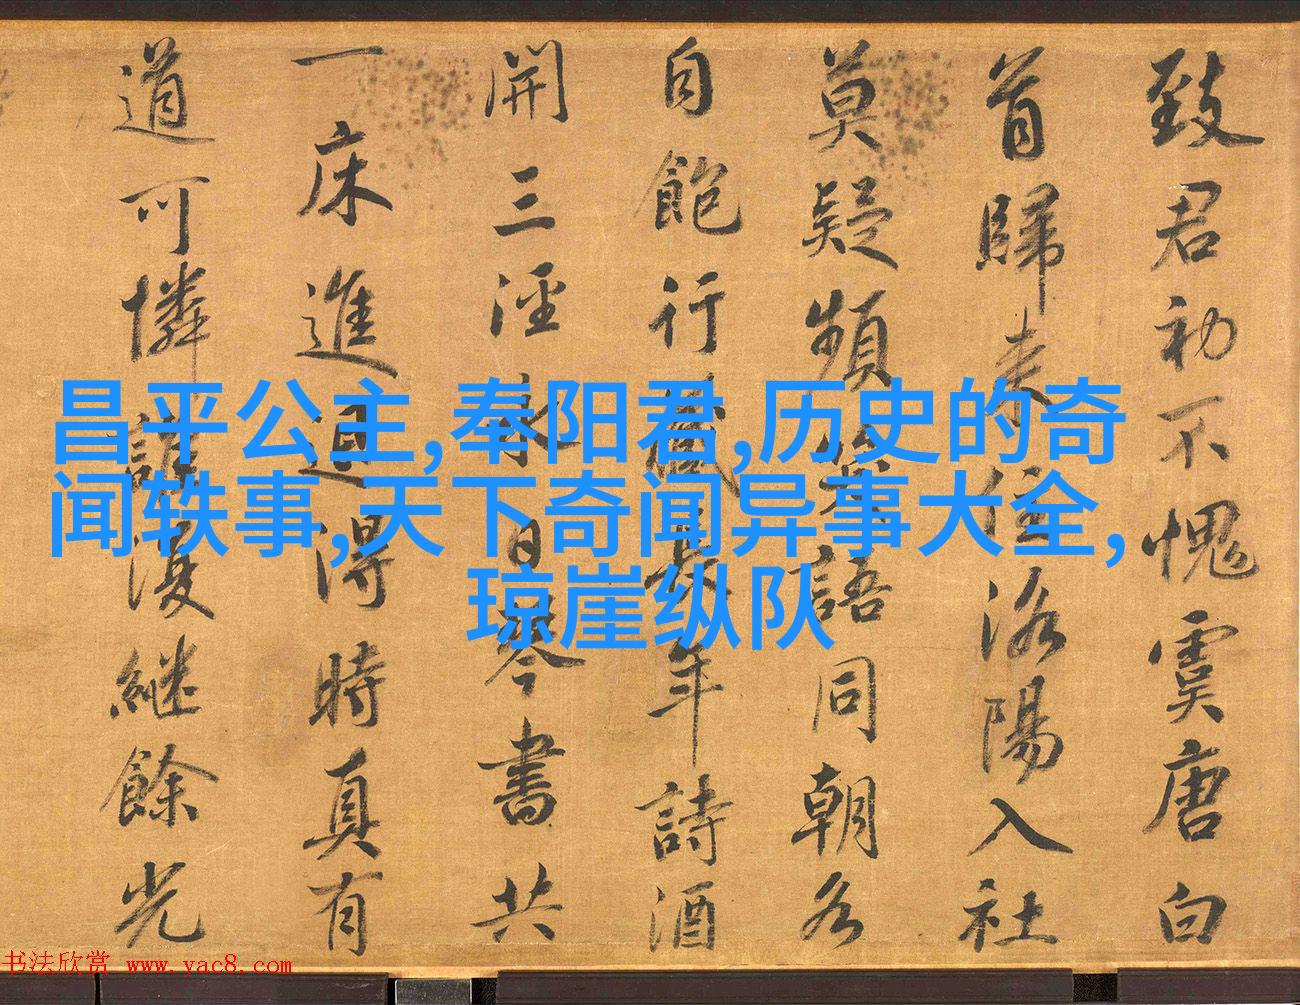 致君初不愧虞唐白
首歸来住洛陽入社
莫疑頻笑語同朝各
自飽行藏長年詩酒
開三涇永日琴書共
一床進退得時真有
道可憐誰復継餘光
昌平公主,奉阳君,历史的奇
闻轶事,天下奇闻异事大全,
琼崖纵队
书法欣赏 www.yac8.com